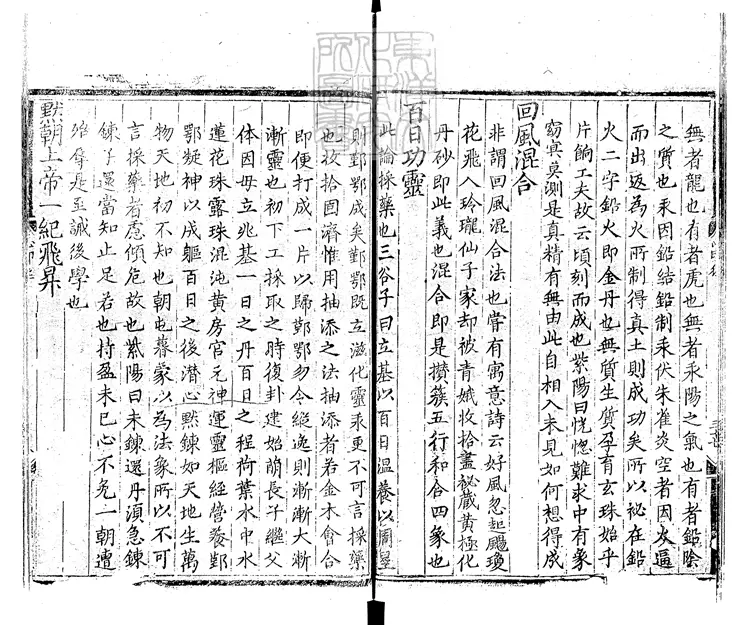 無者龍也有者虎也無者汞陽之氣也有者鉛陰
之質也汞因鉛結鉛制汞伏朱雀炎空者因火逼
而出返為火所制得真土則成功矣所以祕在鉛
火二字鉛火即金丹也無質生質孕有玄珠始乎
片餉工夫故云頃刻而成也紫陽曰恍惚難求中有象
窈冥莫測是真精有無由此自相入未見如何想得成
回風混合
非謂回風混合法也嘗有寓意詩云好風忽起颺瓊
花飛入玲瓏仙子家却被青娥收拾盡祕藏黄極化
丹砂即此義也混合即是攅簇五行和合四象也
百日功靈
此論採藥也三谷子曰立基以百日温養以周星
則鄞鄂成矣鄞鄂既立滋化靈汞更不可言採藥
也收拾固濟惟用抽添之法抽添者若金木會合
即便打成一片以歸鄞鄂勿令縱逸則漸漸大漸
漸靈也初下工採取之時復卦建始萌長子繼父
體因母立兆基一日之丹百日之程荷葉水中水
蓮花珠露珠混沌黄房官元神運靈樞經營養鄞
鄂凝神以成軀百日之後潜心默鍊如天地生萬
物天地初不知也朝屯暮蒙以為法象所以不可
言採藥者慮傾危故也紫陽曰未鍊還丹湏急鍊
鍊了還當知止足若也持盈未已心不免一朝遭
殆辱是至誠後學也
默朝上帝一紀飛昇